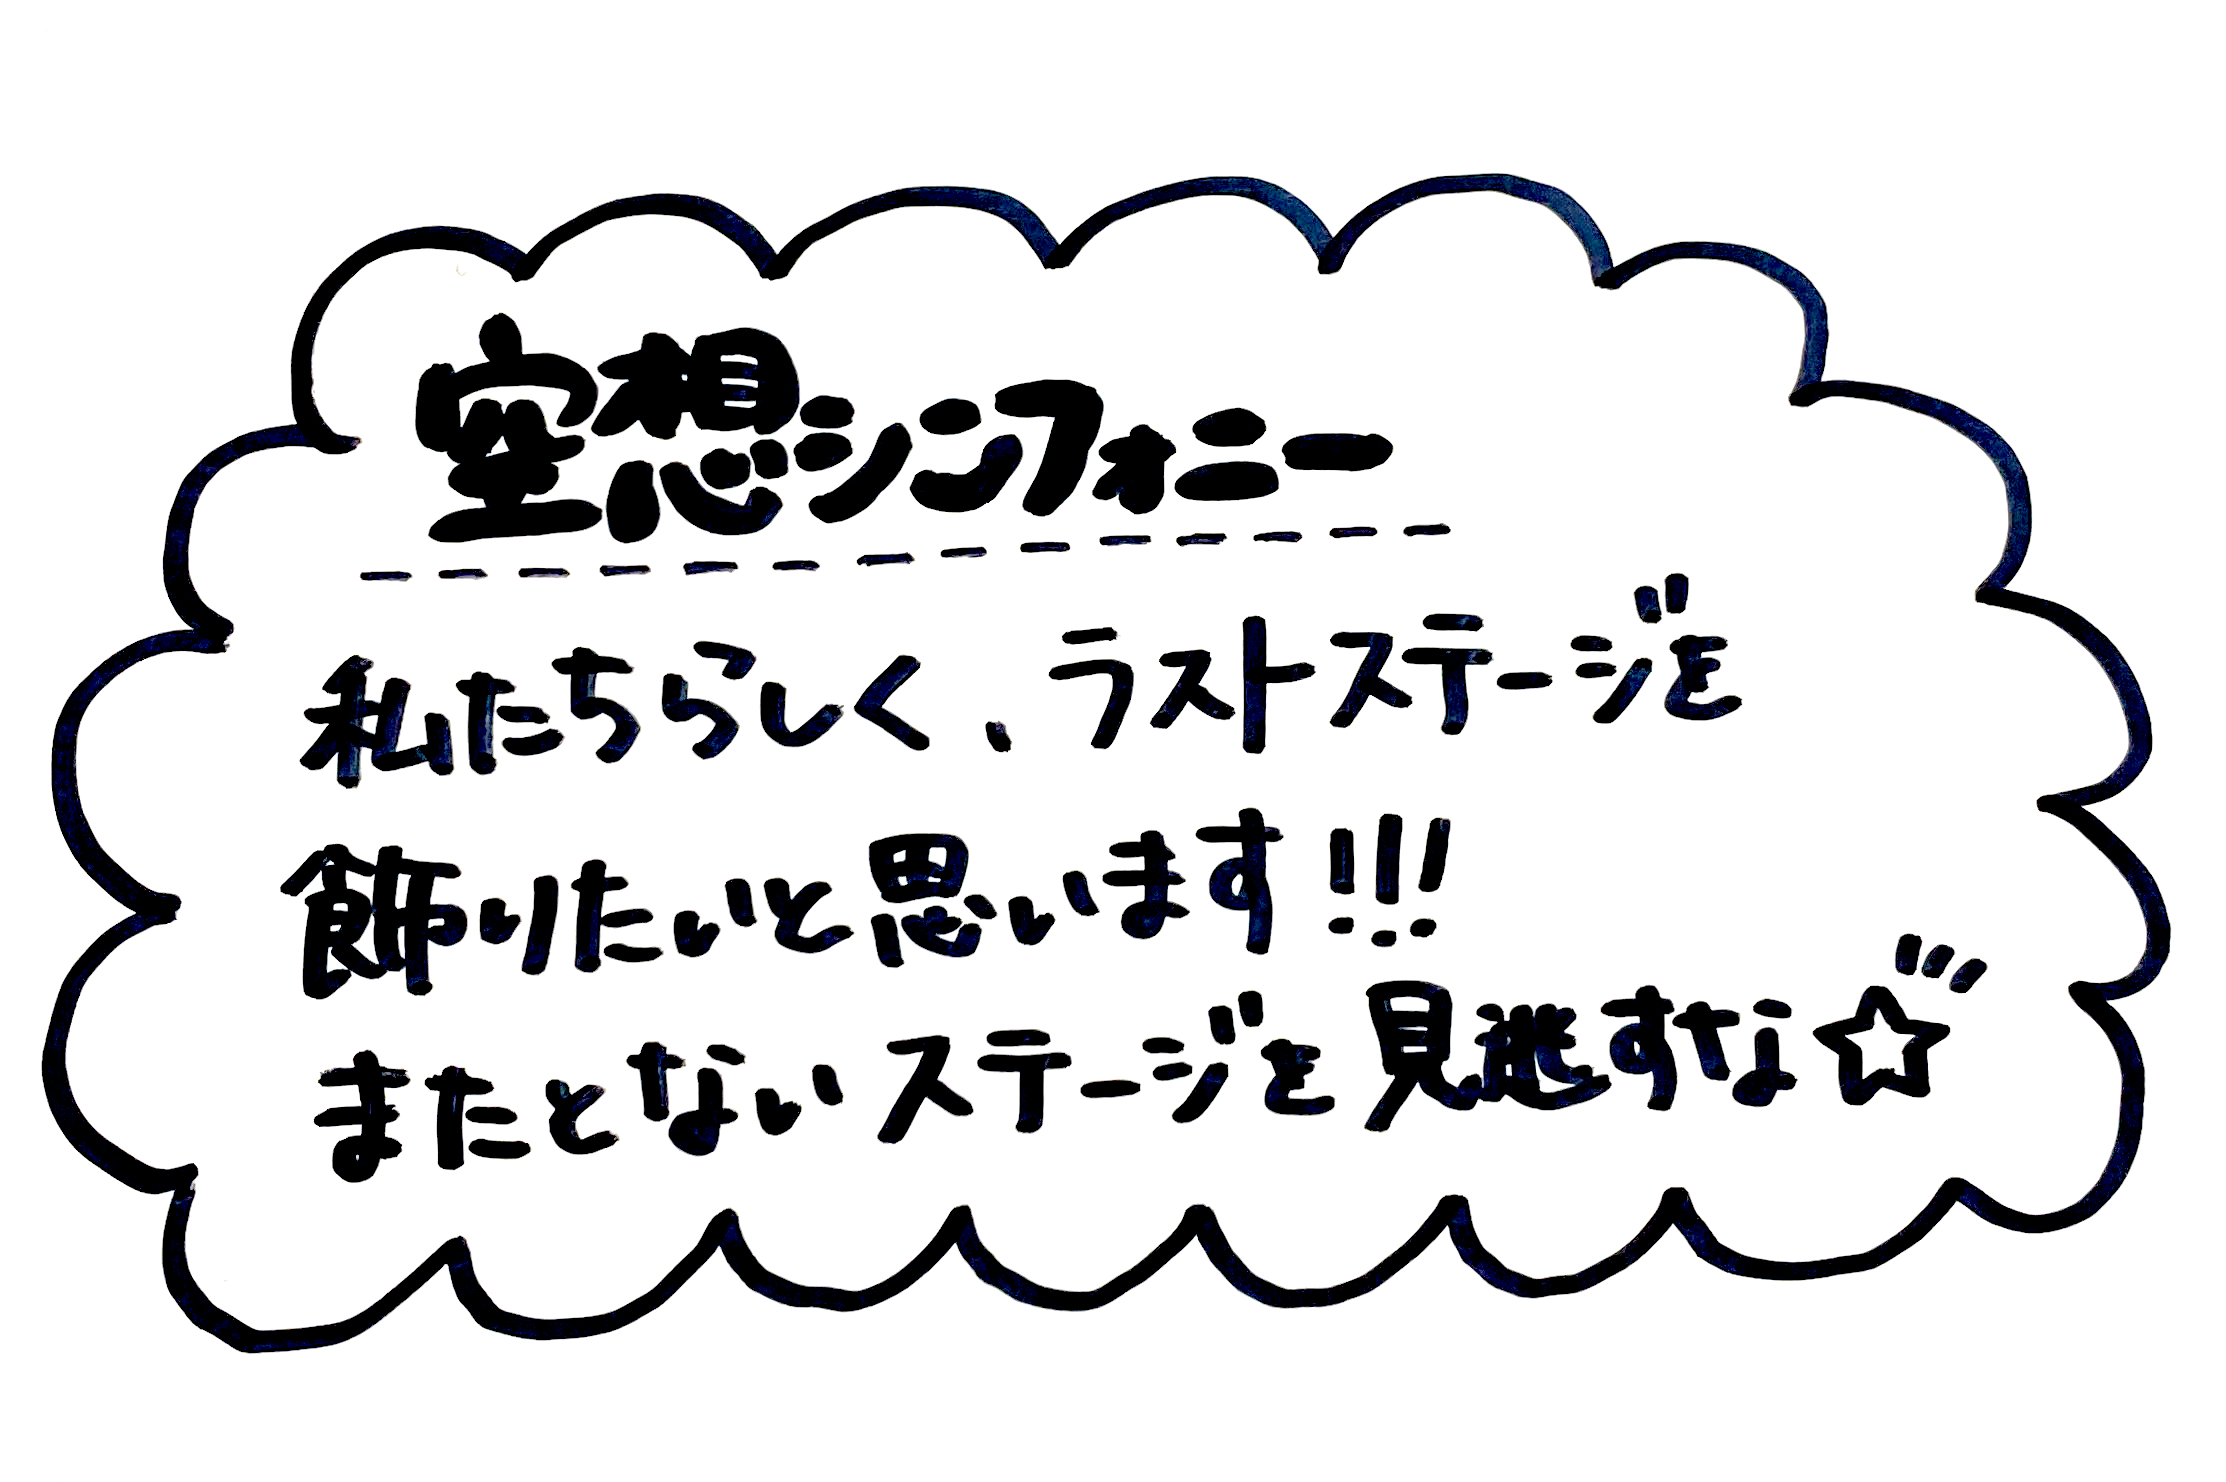 空想シンフォニー
私たちらしく、ラストステージを
飾りたいと思います!!!
またとないステージを見逃すな☆